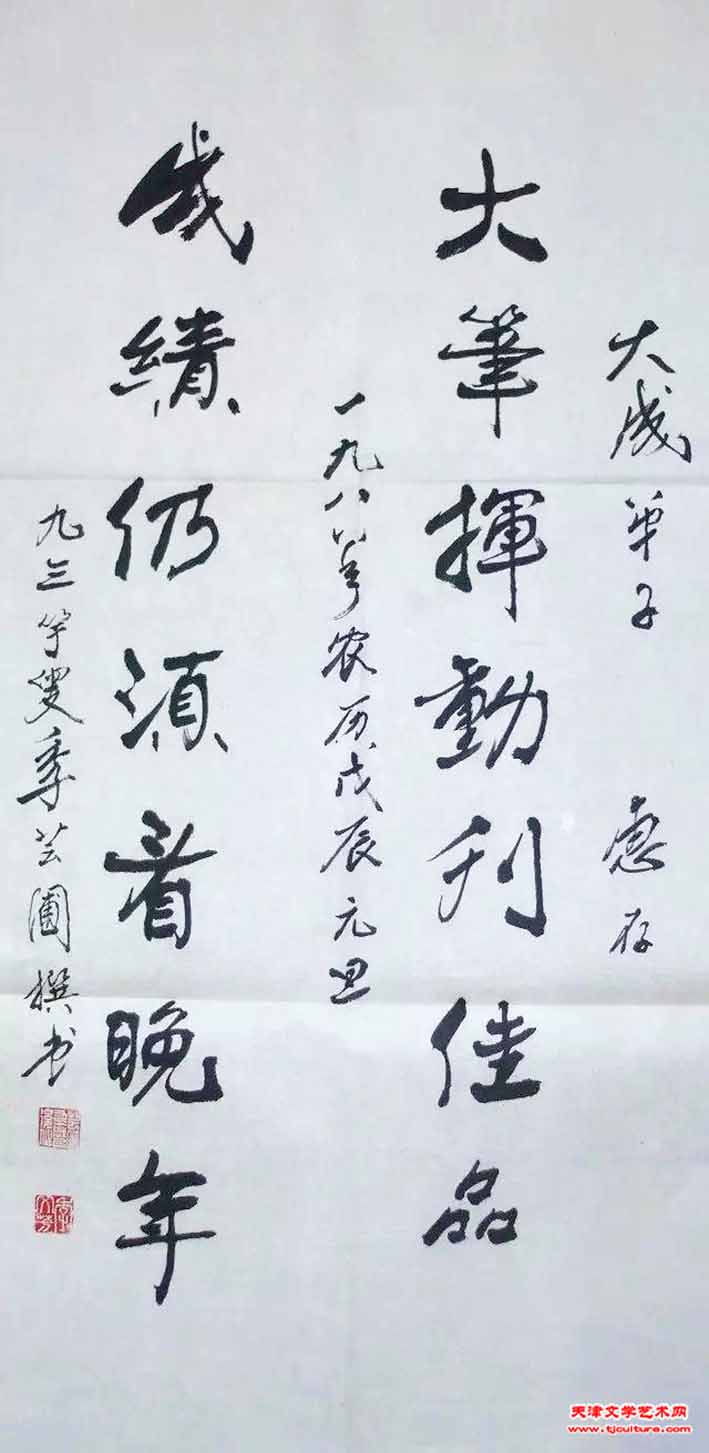 大成弟子 惠存
大筆揮動刊佳品
一九八八年农历戊辰元旦
成績仍須看晚年
九三竽叟季芸圃撰书
天津文学艺术网
www.tjculture.com